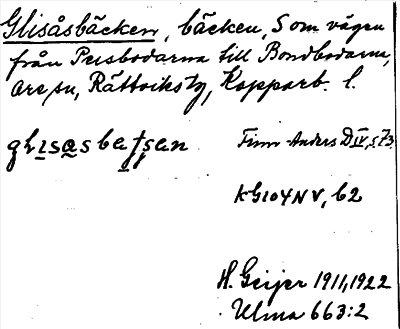 Glisåsbäcken, bäcken, S om vägen
från Persbodarna till Bondbodarna,
Ore sn, Rättviks tg, Kopparb. l.
Finn-Anders D IV, s 73
KG104NV, b2
H. Geijer 1911, 1922
Ulma 663:2